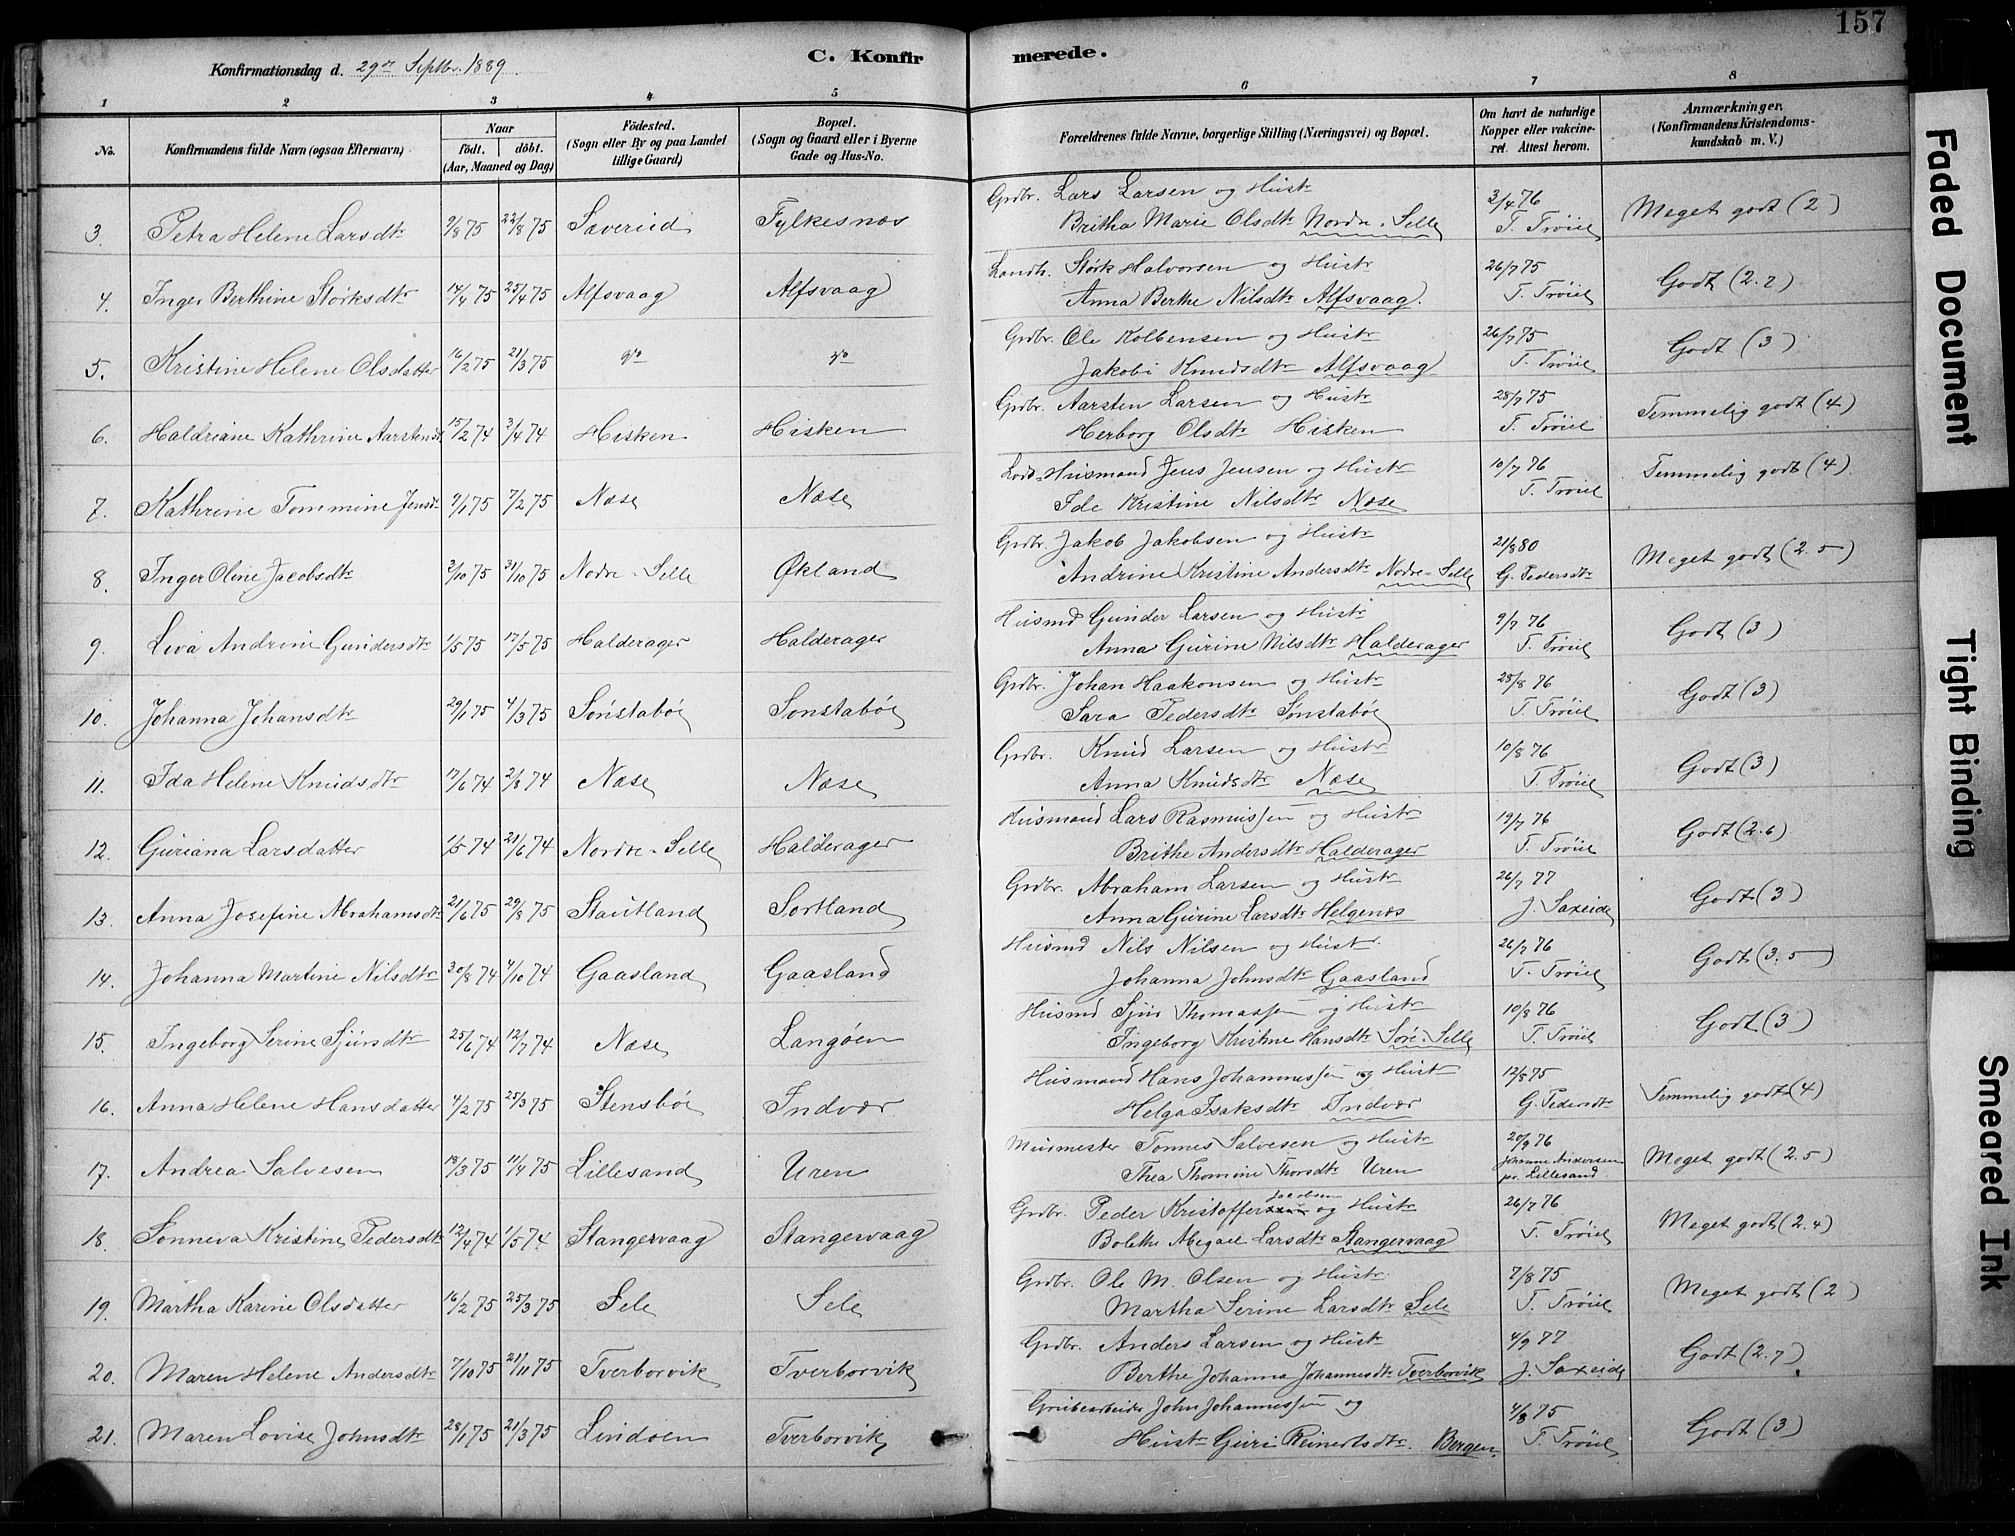 157
Konfirmationsdag d. 29de Septbr. 1889.
C. Konfir merede.
1 2 3 4 5 6 7 8
No. Konfirmandens fulde Navn (ogsaa Efternavn) Naar födt. döbt. (Aar, Maaned og Dag) Födested. (Sogn eller By og paa Landet lillige Gaard) Bopæl. (Sogn og Gaard eller i Byerne Gade og Hus-No. Forældrenes fulde Navne, borgerlige Stilling (Næringsvei) og Bopæl. Om havt de naturlige Kopper eller vakcineret. Attest herom. Anmærkninger, (Konfirmandens Kristendomskundskab m. V.)
3. Petra Helene Larsdtr 9/8 75 22/8 75 Saverud Fylkesnæs Grdbr. Lars Larsen og Hustr 3/4 76 Meget godt (2)
Britha Marie Olsdtr Nordre-Selle T. Trøiel
4. Inger Berthine Størksdtr 14/4 75 25/4 75 Alfsvaag Alfsvaag Landh. Størk Halvorsen og Hustr 26/7 75 Godt (2.2)
Anna Berthe Nilsdtr Alfsvaag. T. Trøiel
5. Kristine Helene Olsdatter 16/2 75 21/3 75 do do Grdbr. Ole Kolbensen og Hustr 26/7 75 Godt (3)
Jakobi Knudsdtr Alfsvaag T. Trøiel
6. Haldriane Kathrine Aarstendtr 15/2 74 3/4 74 Hisken Hisken Grdbr. Aarsten Larsen og Hustr 28/7 75 Temmelig godt (4)
Herborg Olsdtr Hisken T. Trøiel
7. Kathrine Tommine Jensd 9/1 75 7/2 75 Næse Næse Lods-Husmand Jens Jensen og Hustr 10/7 76 Temmelig godt (4)
Ide Kristine Nilsdtr Næse T. Trøiel
8. Inger Oline Jacobsdtr 2/10 75 31/10 75 Nodre-Selle Økland Grdbr. Jakob Jakobsen og Hustr 21/8 80 Meget godt (2.5)
Andrine Kristine Andersdtr Nodre-Selle G. Pedersdtr
9. Liva Andrine Gundersdtr 1/5 75 17/5 75 Halderager Halderager Husmd Gunder Larsen og Hustr 9/7 76 Godt (3)
Anna Gurine Nilsdtr Halderager T. Trøiel
10. Johanna Johansdtr 29/1 75 4/3 75 Sønstabøe Sønstabøe Grdbr. Johan Haakonsen og Hustr 25/8 76 Godt (3)
Sara Pedersdtr Sønstabøe T. Trøiel
11. Ida Helene Knudsdtr 17/6 74 2/8 74 Næse Næse Grdbr. Knud Larsen og Hustr 10/8 76 Godt (3)
Anna Knudsdtr Næse T. Trøiel
12. Guriana Larsdatter 1/5 74 21/6 74 Nordre-Selle Halderager Husmand Lars Rasmussen og Hustr 19/7 76 Godt (2.6)
Brithe Andersdtr Halderager T. Trøiel
13. Anna Josefine Abrahamsdtr 21/6 75 29/8 75 Stautland Sortland Grdbr. Abraham Larsen og Hustr 26/7 77 Godt (3)
Anna Gurine Larsdtr Helgenæs J. Saxeide
14. Johanna Martine Nilsdtr 30/8 74 4/10 74 Gaasland Gaasland Husmd Nils Nilsen og Hustr 26/7 76 Godt (3.5)
Johanna Johnsdtr Gaasland T. Trøiel
15. Ingeborg Serine Sjursdtr 25/6 74 12/7 74 Næse Langøen Husmd Sjur Thomassen og Hustr 10/8 76 Godt (3)
Ingeborg Kristine Hansdtr Søre-Selle T. Trøiel
16. Anna Helene Hansdatter 4/2 75 25/3 75 Stensbøe Indvær Husmand Hans Johannessen og Hust 12/8 75 Temmelig godt (4)
Helga Isaksdtr Indvær G. Pedersdtr
17. Andrea Salvesen 18/3 75 11/4 75 Lillesand Uren Muismester Tønnes Salvesen og Hustr 20/9 76 Meget godt (2.5)
Thea Thomine Thorsdtr Uren Johanne Andersen pr. Lillesand.
18. Sønneva Kristine Pedersdtr 12/4 74 1/5 74 Stangervaag Stangervaag Grdbr. Peder Kristoffer Jacobsen og Hustr 26/7 76 Meget godt (2.4)
Bolethe Abegael Larsdtr Stangervaag T. Trøiel
19. Martha Karine Olsdatter 16/2 75 25/3 75 Sele Sele Grdbr. Ole M. Olsen og Hustr. 7/8 75 Meget godt (2)
Martha Serine Larsdtr Sele T. Trøiel
20. Maren Helene Andersdtr 7/10 75 21/11 75 Tverborvik Tverborvik Grdbr. Anders Larsen og Hustr 4/9 77 Godt (2.7)
Berthe Johanna Johannesdtr Tverborvik J. Saxeide
21. Maren Lovise Johnsdtr 28/1 75 21/3 75 Lindøen Tverborvik Grubearbeider John Johannessen og 4/8 75 Godt (3)
Hustr Guri Reinertsdtr. Bergen. T. Trøiel
Faded Document
Tight Binding
Smeared Ink